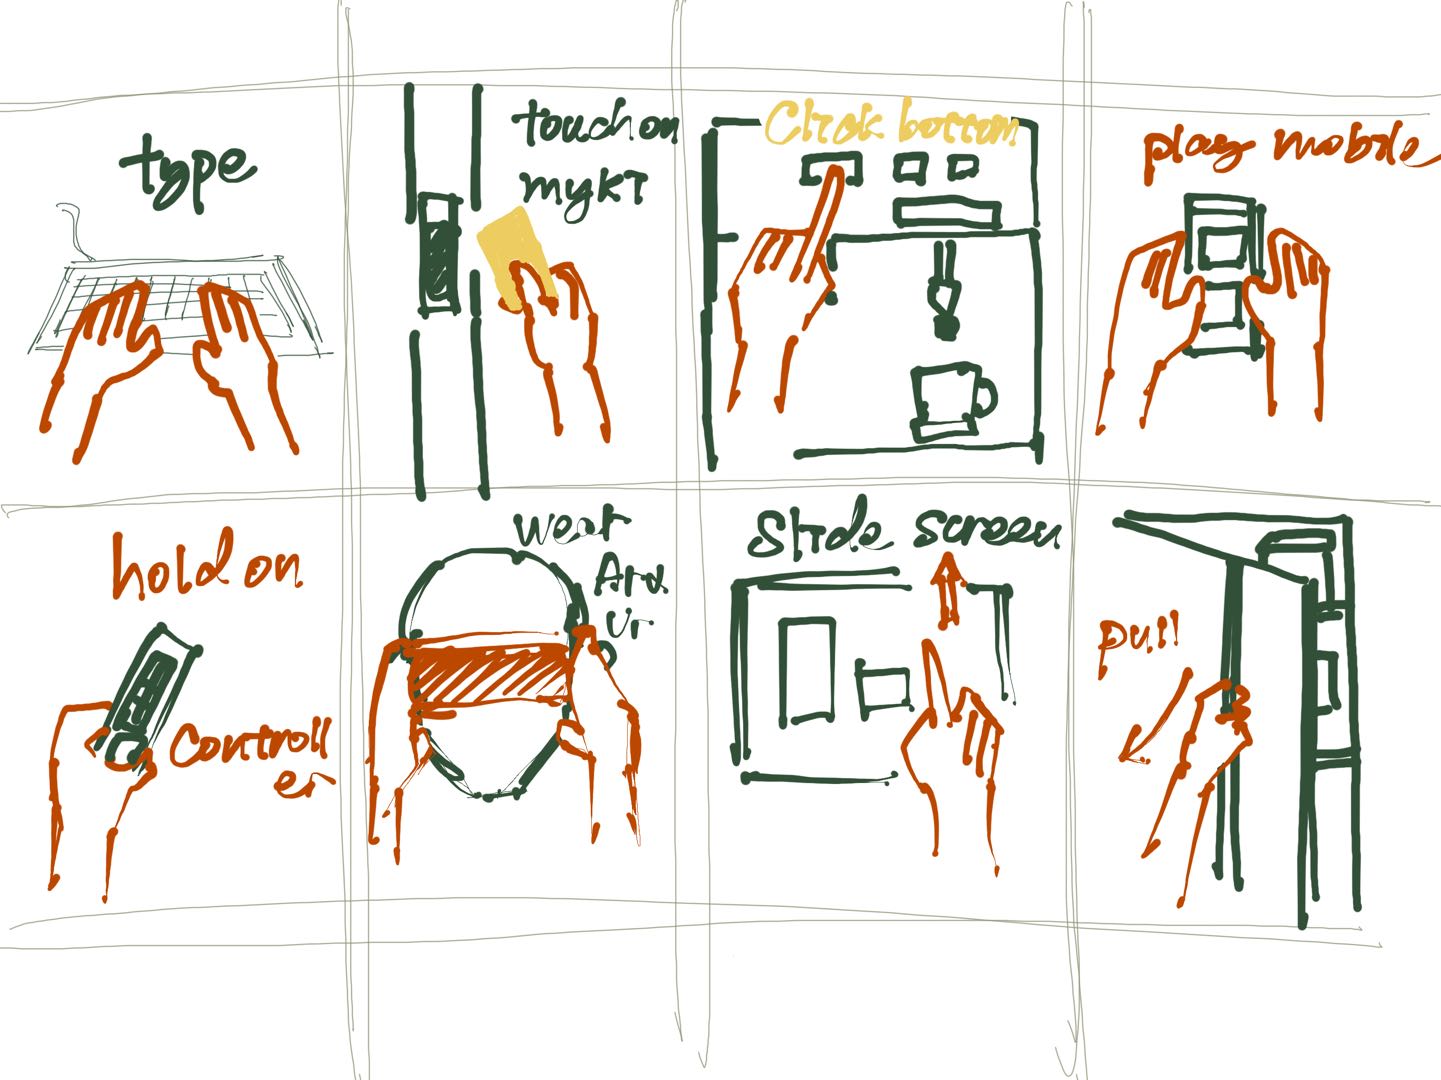 type
touch on
myki
Click bottom
play mobile
hold on
Controll
er
wear
Ar &
Vr
Slide screen
pull